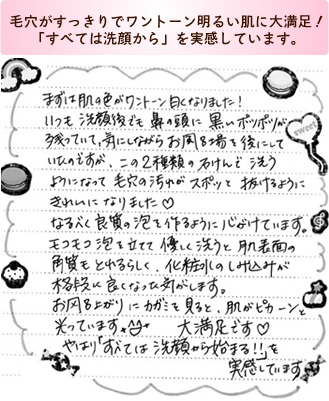 毛穴がすっきりでワントーン明るい肌に大満足！
「すべては洗顔から」を実感しています。
まずは肌の色がワントーン白くなりました！
いつも洗顔後でも鼻の頭に黒いポツポツが
残っていて、気にしながらお風呂場を後にして
いたのですが、この2種類の石けんで洗う
ようになって毛穴の汚れがスポッと抜けるように
きれいになりました♡
なるべく良質の泡を作るように心がけています。
モコモコ泡を立てて優しく洗うと肌表面の
角質もとれるらしく、化粧水のしみ込みが
格段に良くなった気がします。
お風呂上がりにカガミを見ると、肌がピカーンと
光っています。大満足です♡
やはり「すべては洗顔から始まる!!」を
実感しています
sweet